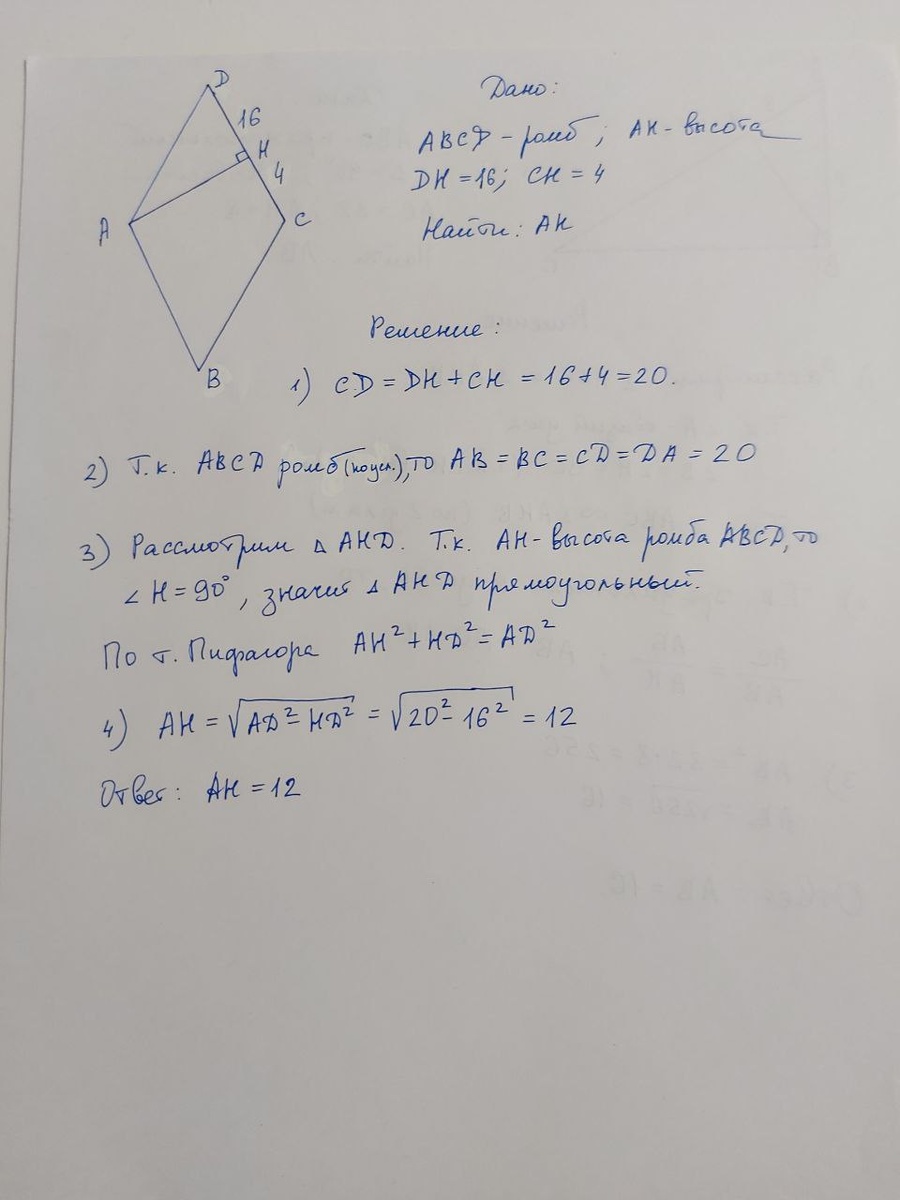 D
16
H
4
A
C
B
Дано:
ABCD - ромб ; AH - высота
DH = 16; CH = 4
Найти: AH
Решение:
1) CD = DH + CH = 16 + 4 = 20.
2) Т.к. ABCD ромб (по усл.), то AB = BC = CD = DA = 20
3) Рассмотрим △ AHD. Т.к. AH - высота ромба ABCD, то
∠ H = 90°, значит △ AHD прямоугольный.
По т. Пифагора AH² + HD² = AD²
4) AH = √AD² - HD² = √20² - 16² = 12
Ответ: AH = 12